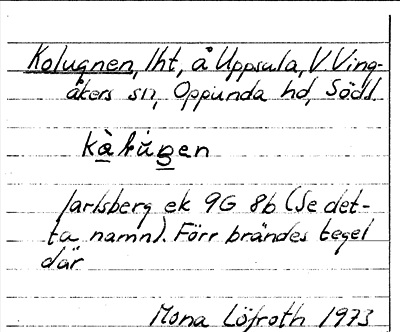 Kolugnen, lht, å Uppsala, V. Ving-
åkers sn, Oppunda hd, Södl.
kàkúgen
Jarlsberg ek 9G 8b (Se det-
ta namn). Förr brändes tegel
där
Mona Löfroth 1973